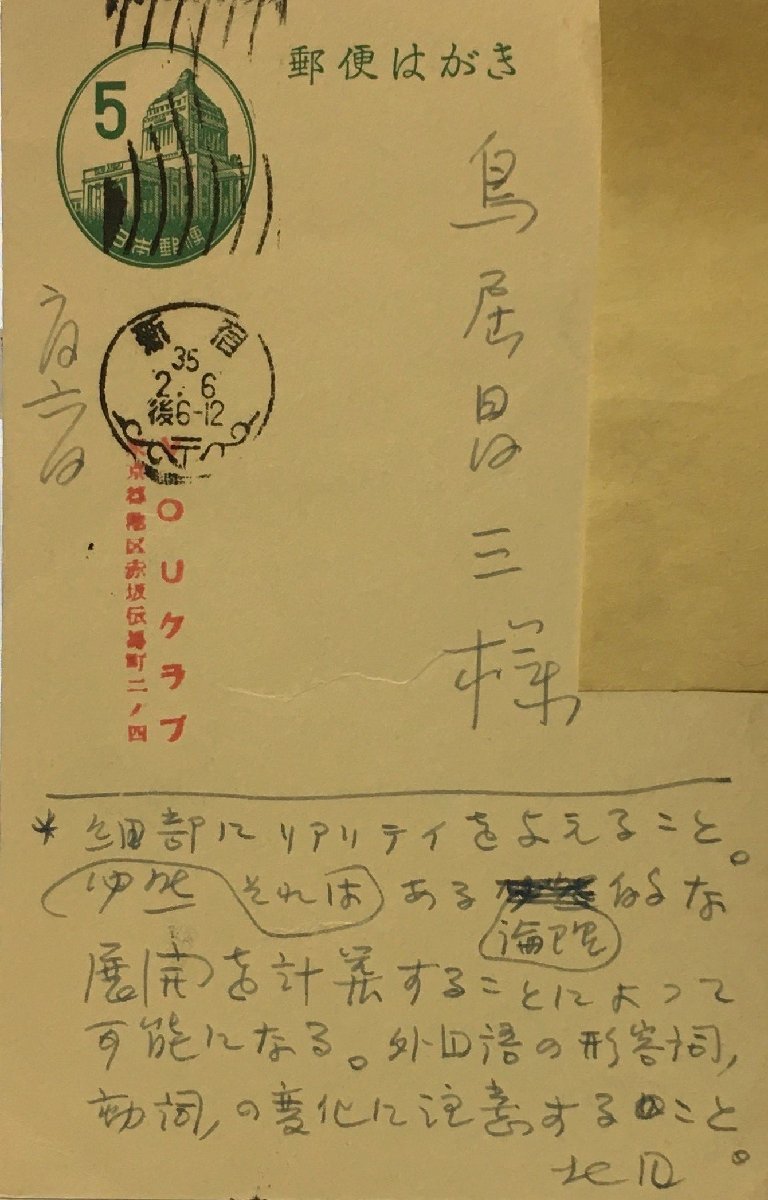 郵便はがき
5
日本郵便
新宿
35
2. 6
後6-12
鳥居昌三様
VOUクラブ
東京都港区赤坂伝馬町二ノ四
* 細部にリアリティを与えること。
それは ある 論理 的な
展開を計算することによって
可能になる。外国語の形容詞,
動詞,の変化に注意すること。
北園